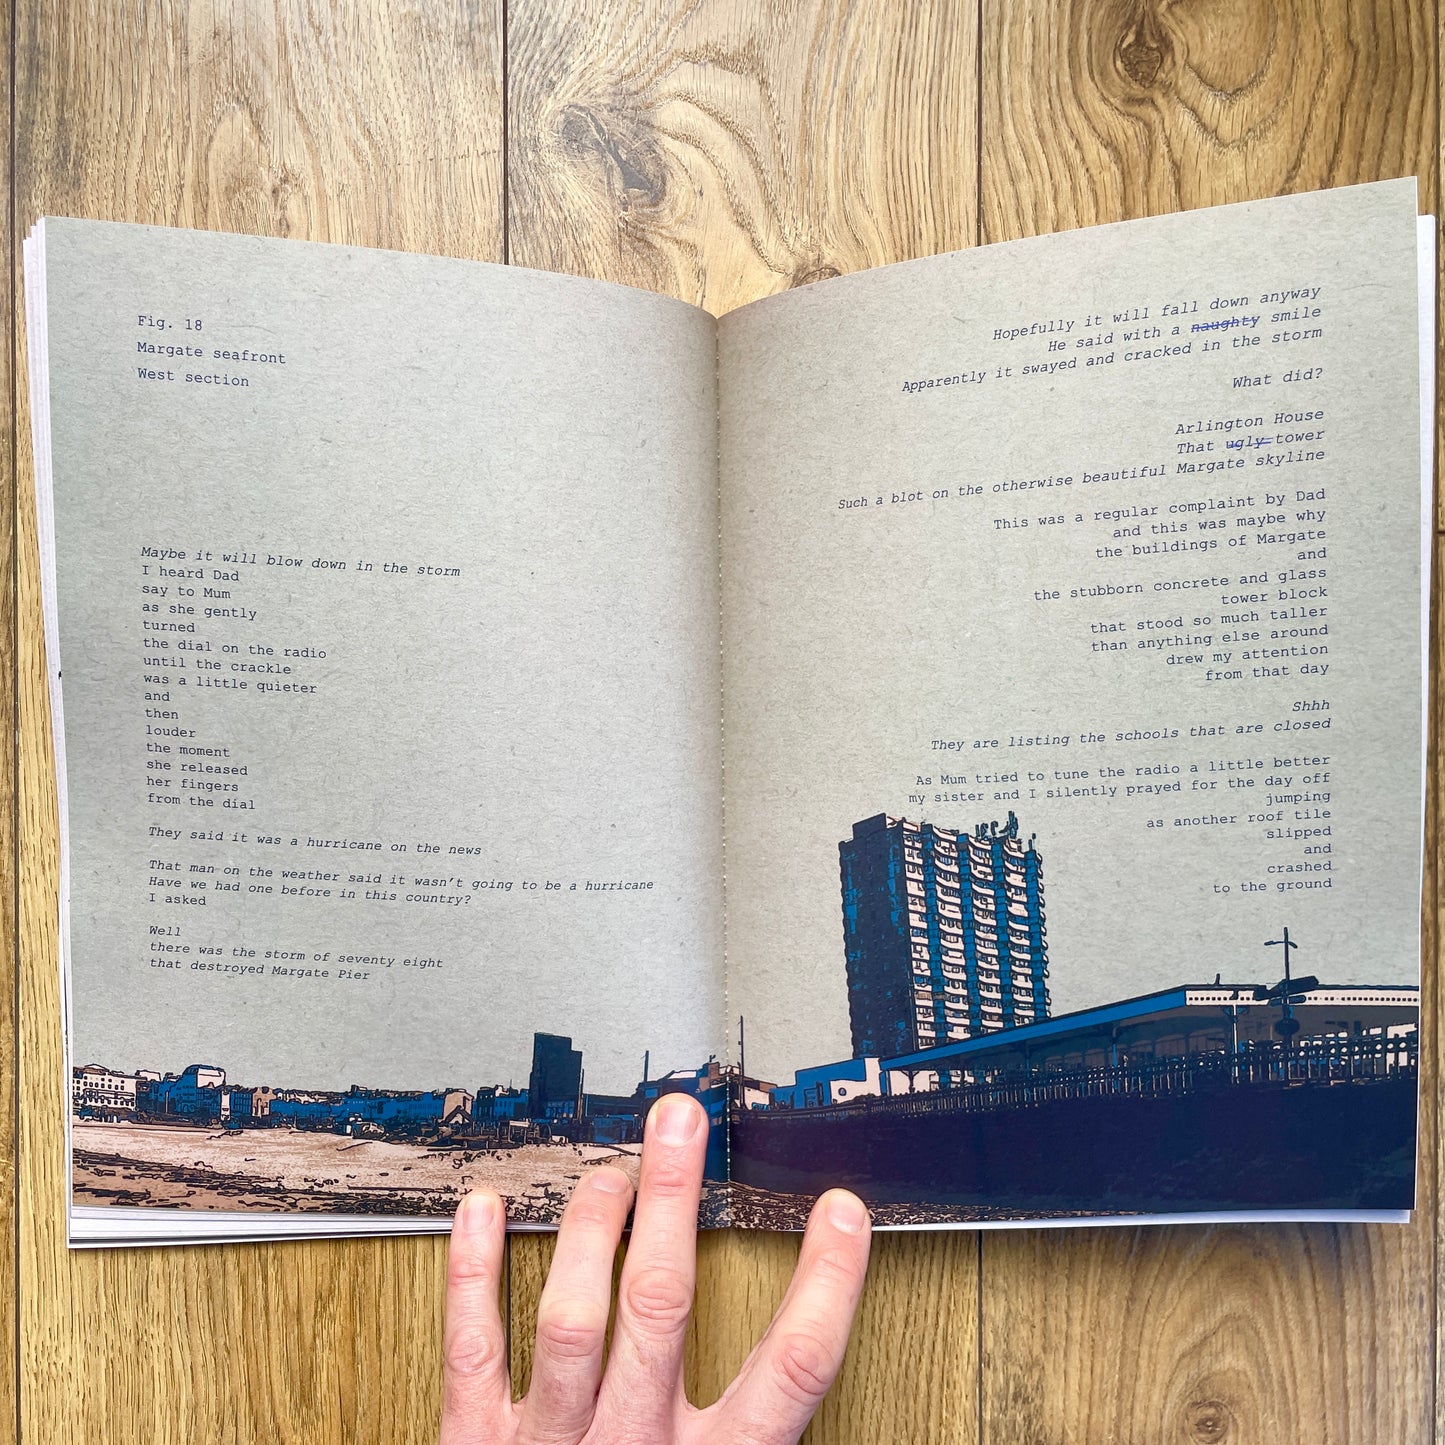 Fig. 18
Margate seafront
West section
Maybe it will blow down in the storm
I heard Dad
say to Mum
as she gently
turned
the dial on the radio
until the crackle
was a little quieter
and
then
louder
the moment
she released
her fingers
from the dial
They said it was a hurricane on the news
That man on the weather said it wasn't going to be a hurricane
Have we had one before in this country?
I asked
Well
there was the storm of seventy eight
that destroyed Margate Pier
Hopefully it will fall down anyway
He said with a naughty smile
Apparently it swayed and cracked in the storm
What did?
Arlington House
That ugly tower
Such a blot on the otherwise beautiful Margate skyline
This was a regular complaint by Dad
and this was maybe why
the buildings of Margate
and
the stubborn concrete and glass
tower block
that stood so much taller
than anything else around
drew my attention
from that day
Shhh
They are listing the schools that are closed
As Mum tried to tune the radio a little better
my sister and I silently prayed for the day off
jumping
as another roof tile
slipped
and
crashed
to the ground